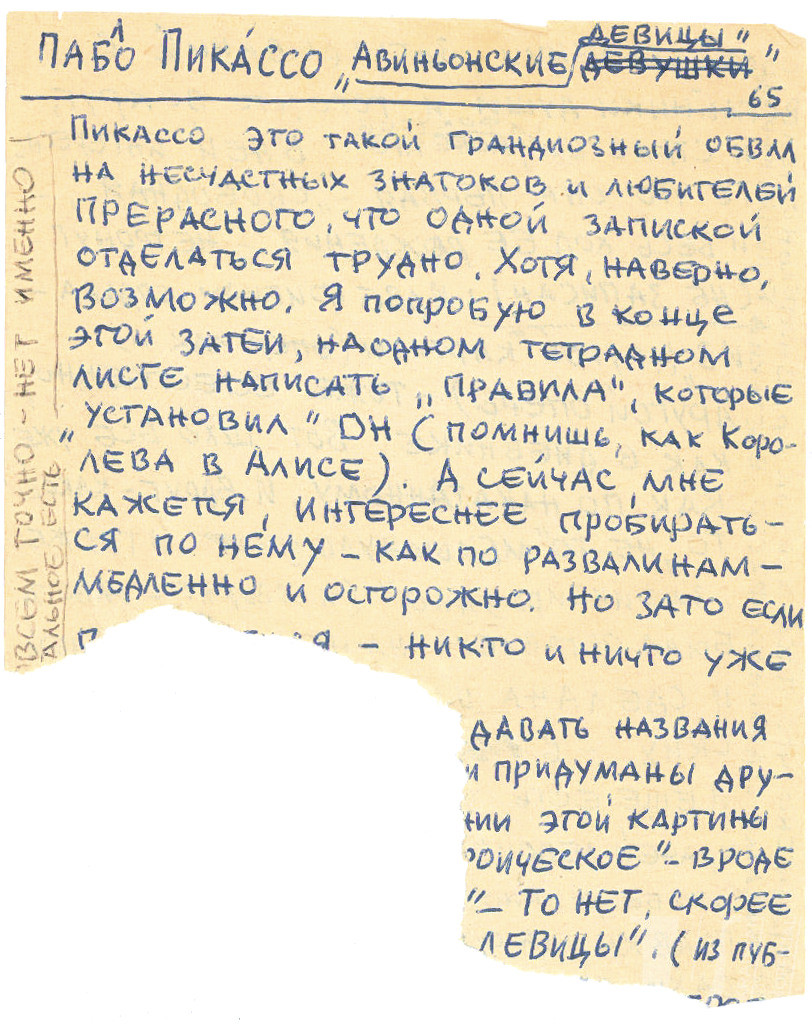 ПАБЛО ПИКА́ССО „АВИНЬОНСКИЕ ДЕВИЦЫ"
ДЕВУШКИ"
65
ПИКАССО ЭТО ТАКОЙ ГРАНДИОЗНЫЙ ОБВАЛ
НА НЕСЧАСТНЫХ ЗНАТОКОВ И ЛЮБИТЕЛЕЙ
ПРЕРАСНОГО, ЧТО ОДНОЙ ЗАПИСКОЙ
ОТДЕЛАТЬСЯ ТРУДНО. ХОТЯ, НАВЕРНО,
ВОЗМОЖНО. Я ПОПРОБУЮ В КОНЦЕ
ЭТОЙ ЗАТЕИ, НА ОДНОМ ТЕТРАДНОМ
ЛИСТЕ НАПИСАТЬ „ПРАВИЛА", КОТОРЫЕ
„УСТАНОВИЛ" ОН (ПОМНИШЬ, КАК КОРО-
ЛЕВА В АЛИСЕ). А СЕЙЧАС, МНЕ
КАЖЕТСЯ, ИНТЕРЕСНЕЕ ПРОБИРАТЬ-
СЯ ПО НЕМУ – КАК ПО РАЗВАЛИНАМ –
МЕДЛЕННО И ОСТОРОЖНО. НО ЗАТО ЕСЛИ
– НИКТО И НИЧТО УЖЕ
ДАВАТЬ НАЗВАНИЯ
И ПРИДУМАНЫ ДРУ-
НИИ ЭТОЙ КАРТИНЫ
РОИЧЕСКОЕ" – ВРОДЕ
" – ТО НЕТ, СКОРЕЕ
ДЕВИЦЫ". (ИЗ ПУБ-
ОВСЕМ ТОЧНО – НЕТ ИМЕННО
АЛЬНОЕ ЕСТЬ